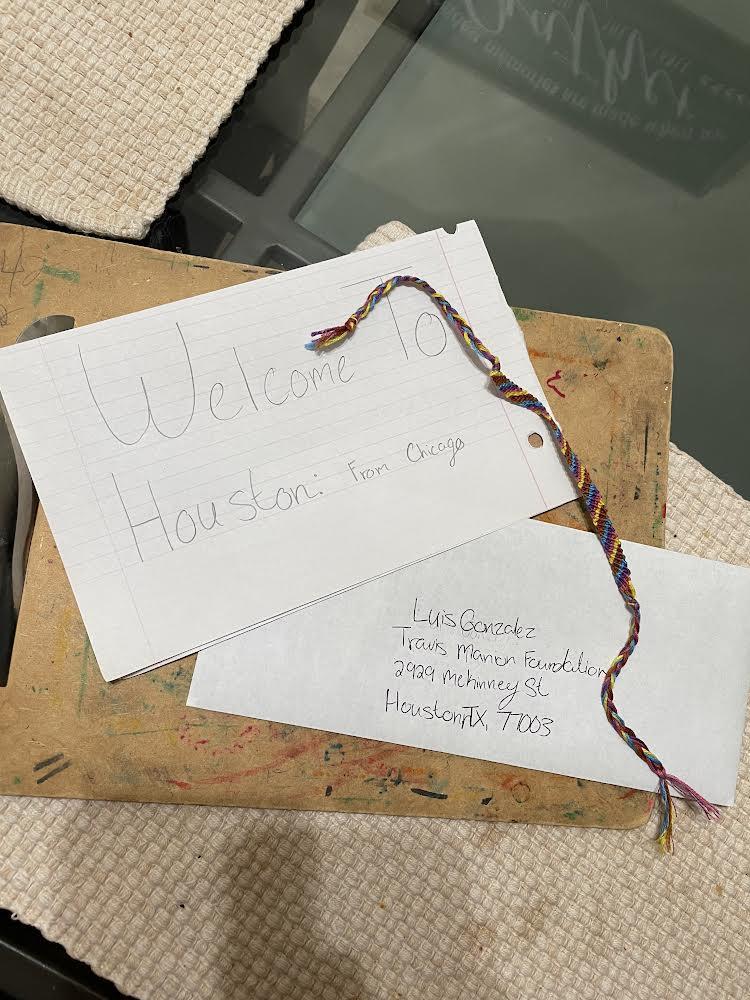 Welcome To
Houston: From Chicago
Luis Gonzalez
Travis Manion Foundation
2929 McKinney St
Houston, TX, 77003